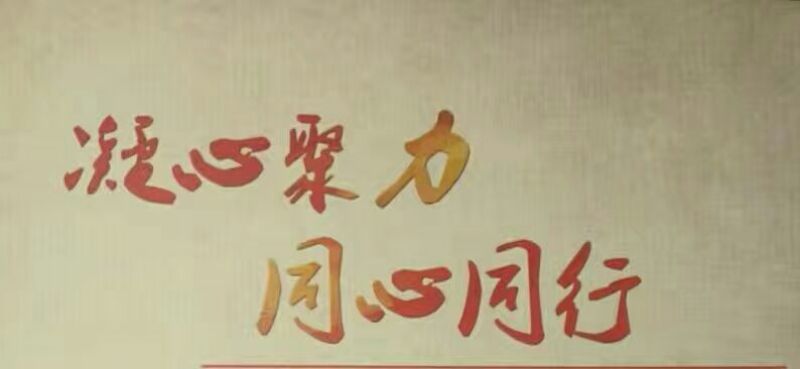 凝心聚力
同心同行